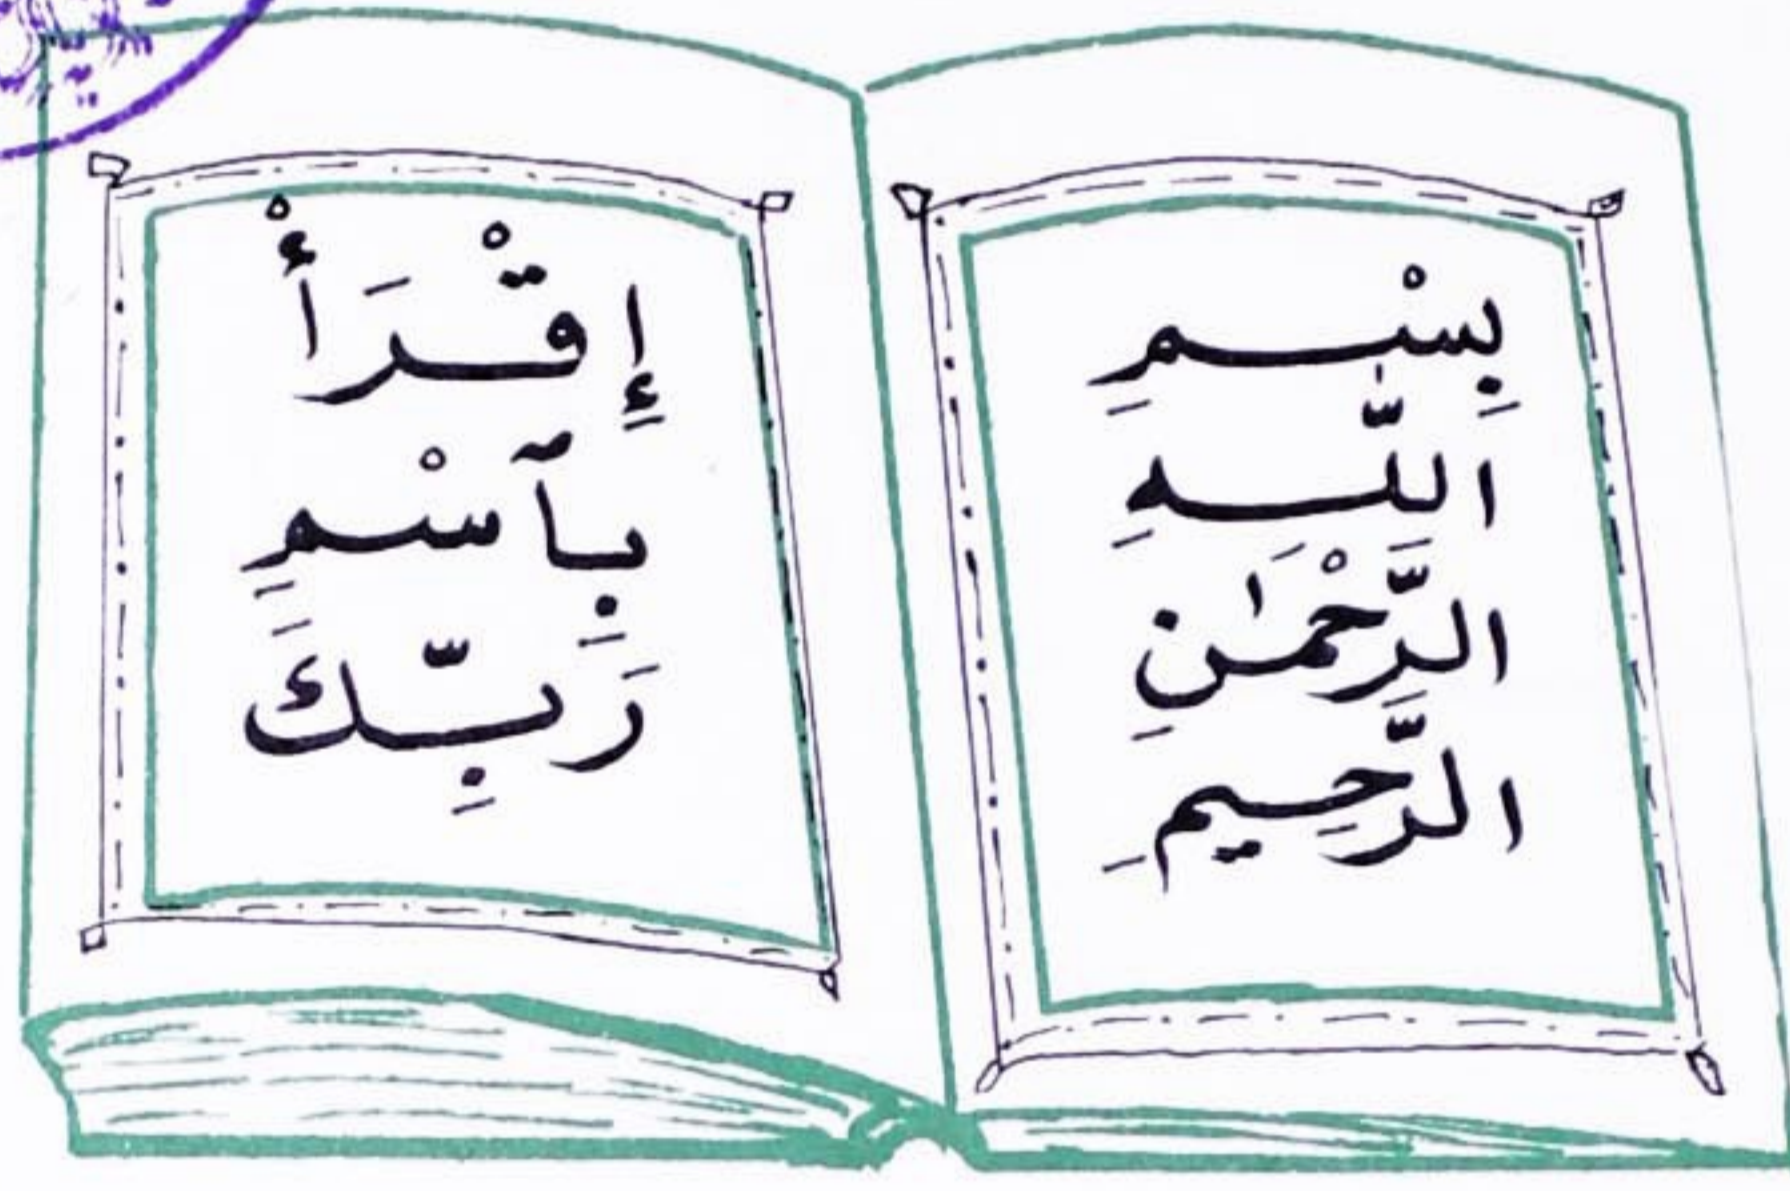 بِسْمِ
اللّٰهِ
الرَّحْمٰنِ
الرَّحِيمِ
إِقْرَأْ
بِآسْمِ
رَبِّكَ